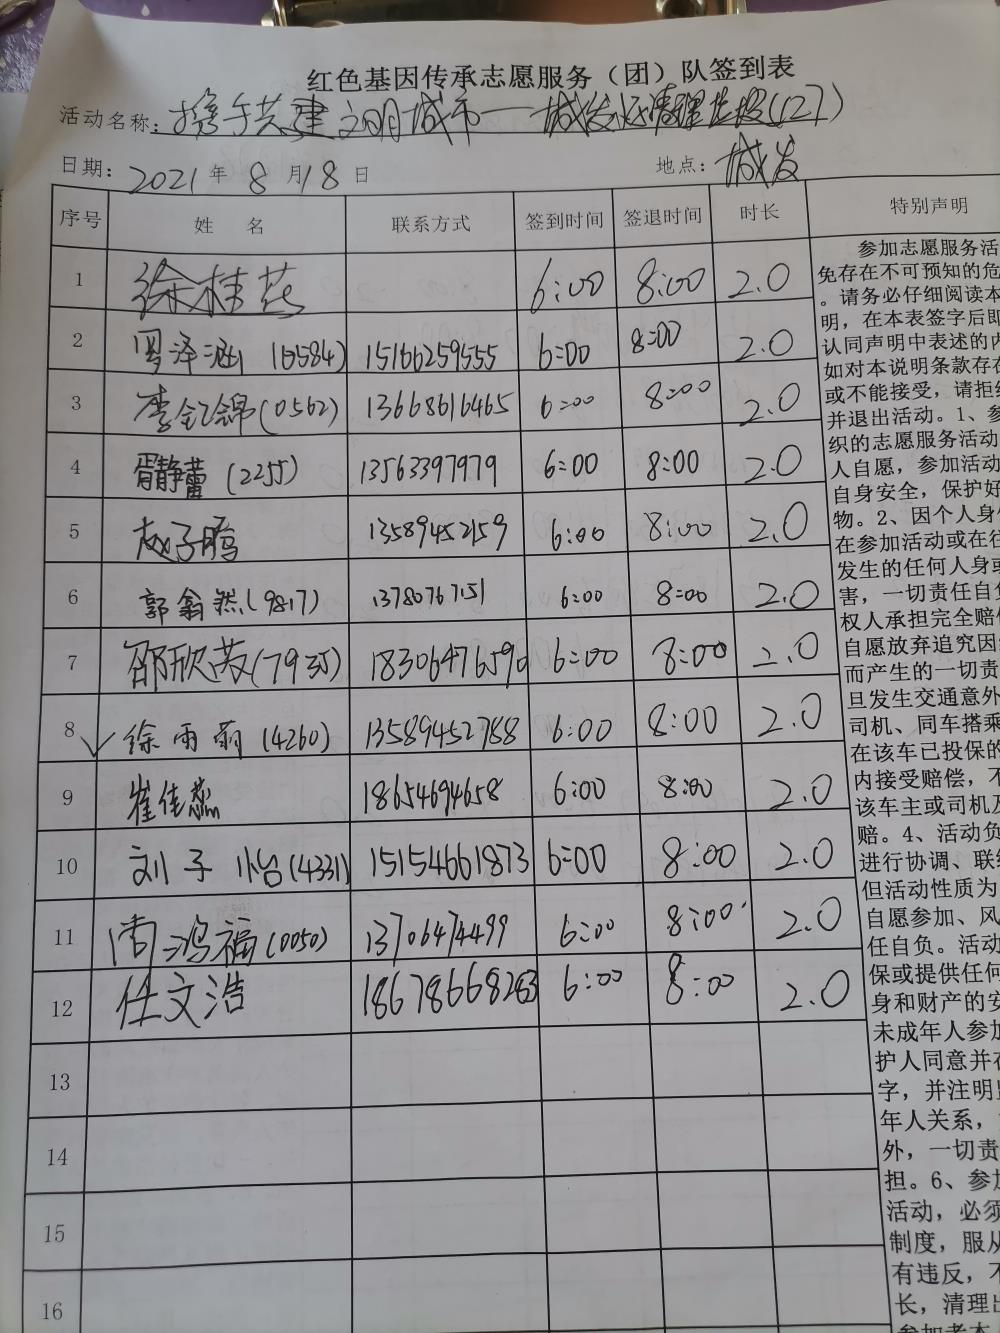 红色基因传承志愿服务（团）队签到表
活动名称：携手共建文明城市——城发 清理 (127)
日期： 2021 年 8 月 18 日 地点：城发
序号 姓 名 联系方式 签到时间 签退时间 时长 特别声明
1 徐桂花 6:00 8:00 2.0
2 周泽涵 (6584) 15166259555 6:00 8:00 2.0
3 李钇锦(0562) 13668616465 6:00 8:00 2.0
4 胥静蕾 (2255) 13563397979 6:00 8:00 2.0
5 赵子腾 13589452159 6:00 8:00 2.0
6 郭翕然(9817) 13780767151 6:00 8:00 2.0
7 邵欣苡(7935) 18306476590 6:00 8:00 2.0
8 徐雨萌 (4260) 13589452788 6:00 8:00 2.0
9 崔佳蕊 18654694658 6:00 8:00 2.0
10 刘子怡(4331) 15154661873 6:00 8:00 2.0
11 尚鸿福(0050) 13706474499 6:00 8:00 2.0
12 任文浩 18678668263 6:00 8:00 2.0
13
14
15
16
参加志愿服务活
免存在不可预知的危
。请务必仔细阅读本
明，在本表签字后即
认同声明中表述的内
如对本说明条款存在
或不能接受，请拒绝
并退出活动。1、参
织的志愿服务活动
人自愿，参加活动
自身安全，保护好
物。2、因个人身体
在参加活动或在往
发生的任何人身或
害，一切责任自负
权人承担完全赔偿
自愿放弃追究因
而产生的一切责
旦发生交通意外
司机、同车搭乘
在该车已投保的
内接受赔偿，不
该车主或司机及
赔。4、活动负
进行协调、联络
但活动性质为
自愿参加、风
任自负。活动
保或提供任何
身和财产的安
未成年人参加
护人同意并在
字，并注明监
年人关系，
外，一切责
担。6、参
活动，必须
制度，服从
有违反，不
长，清理出